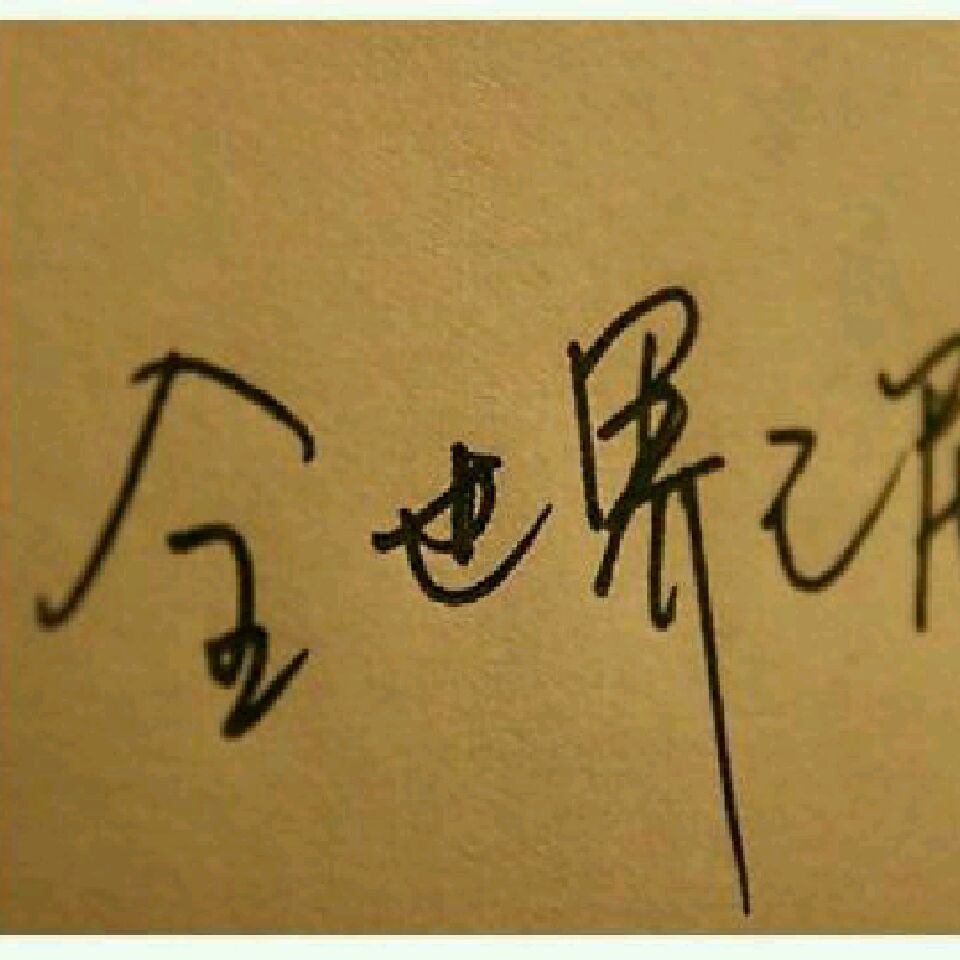 全世界之